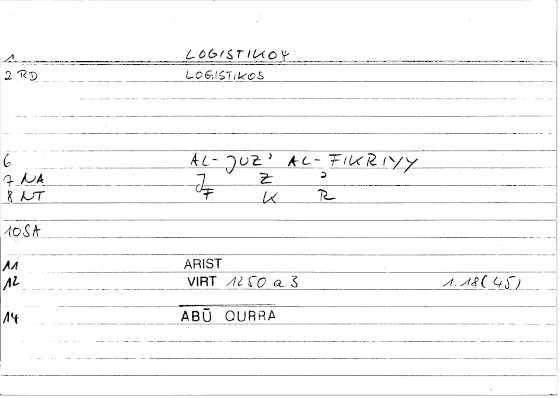 1 LOGISTIKOY
2 RD LOGISTIKOS
6 AL-JUZ' AL-FIKRIYY
7 NA J Z '
8 NT F K R
10 SA
11 ARIST
12 VIRT 1250 a 3 1.18(45)
14 ABŪ QURRA